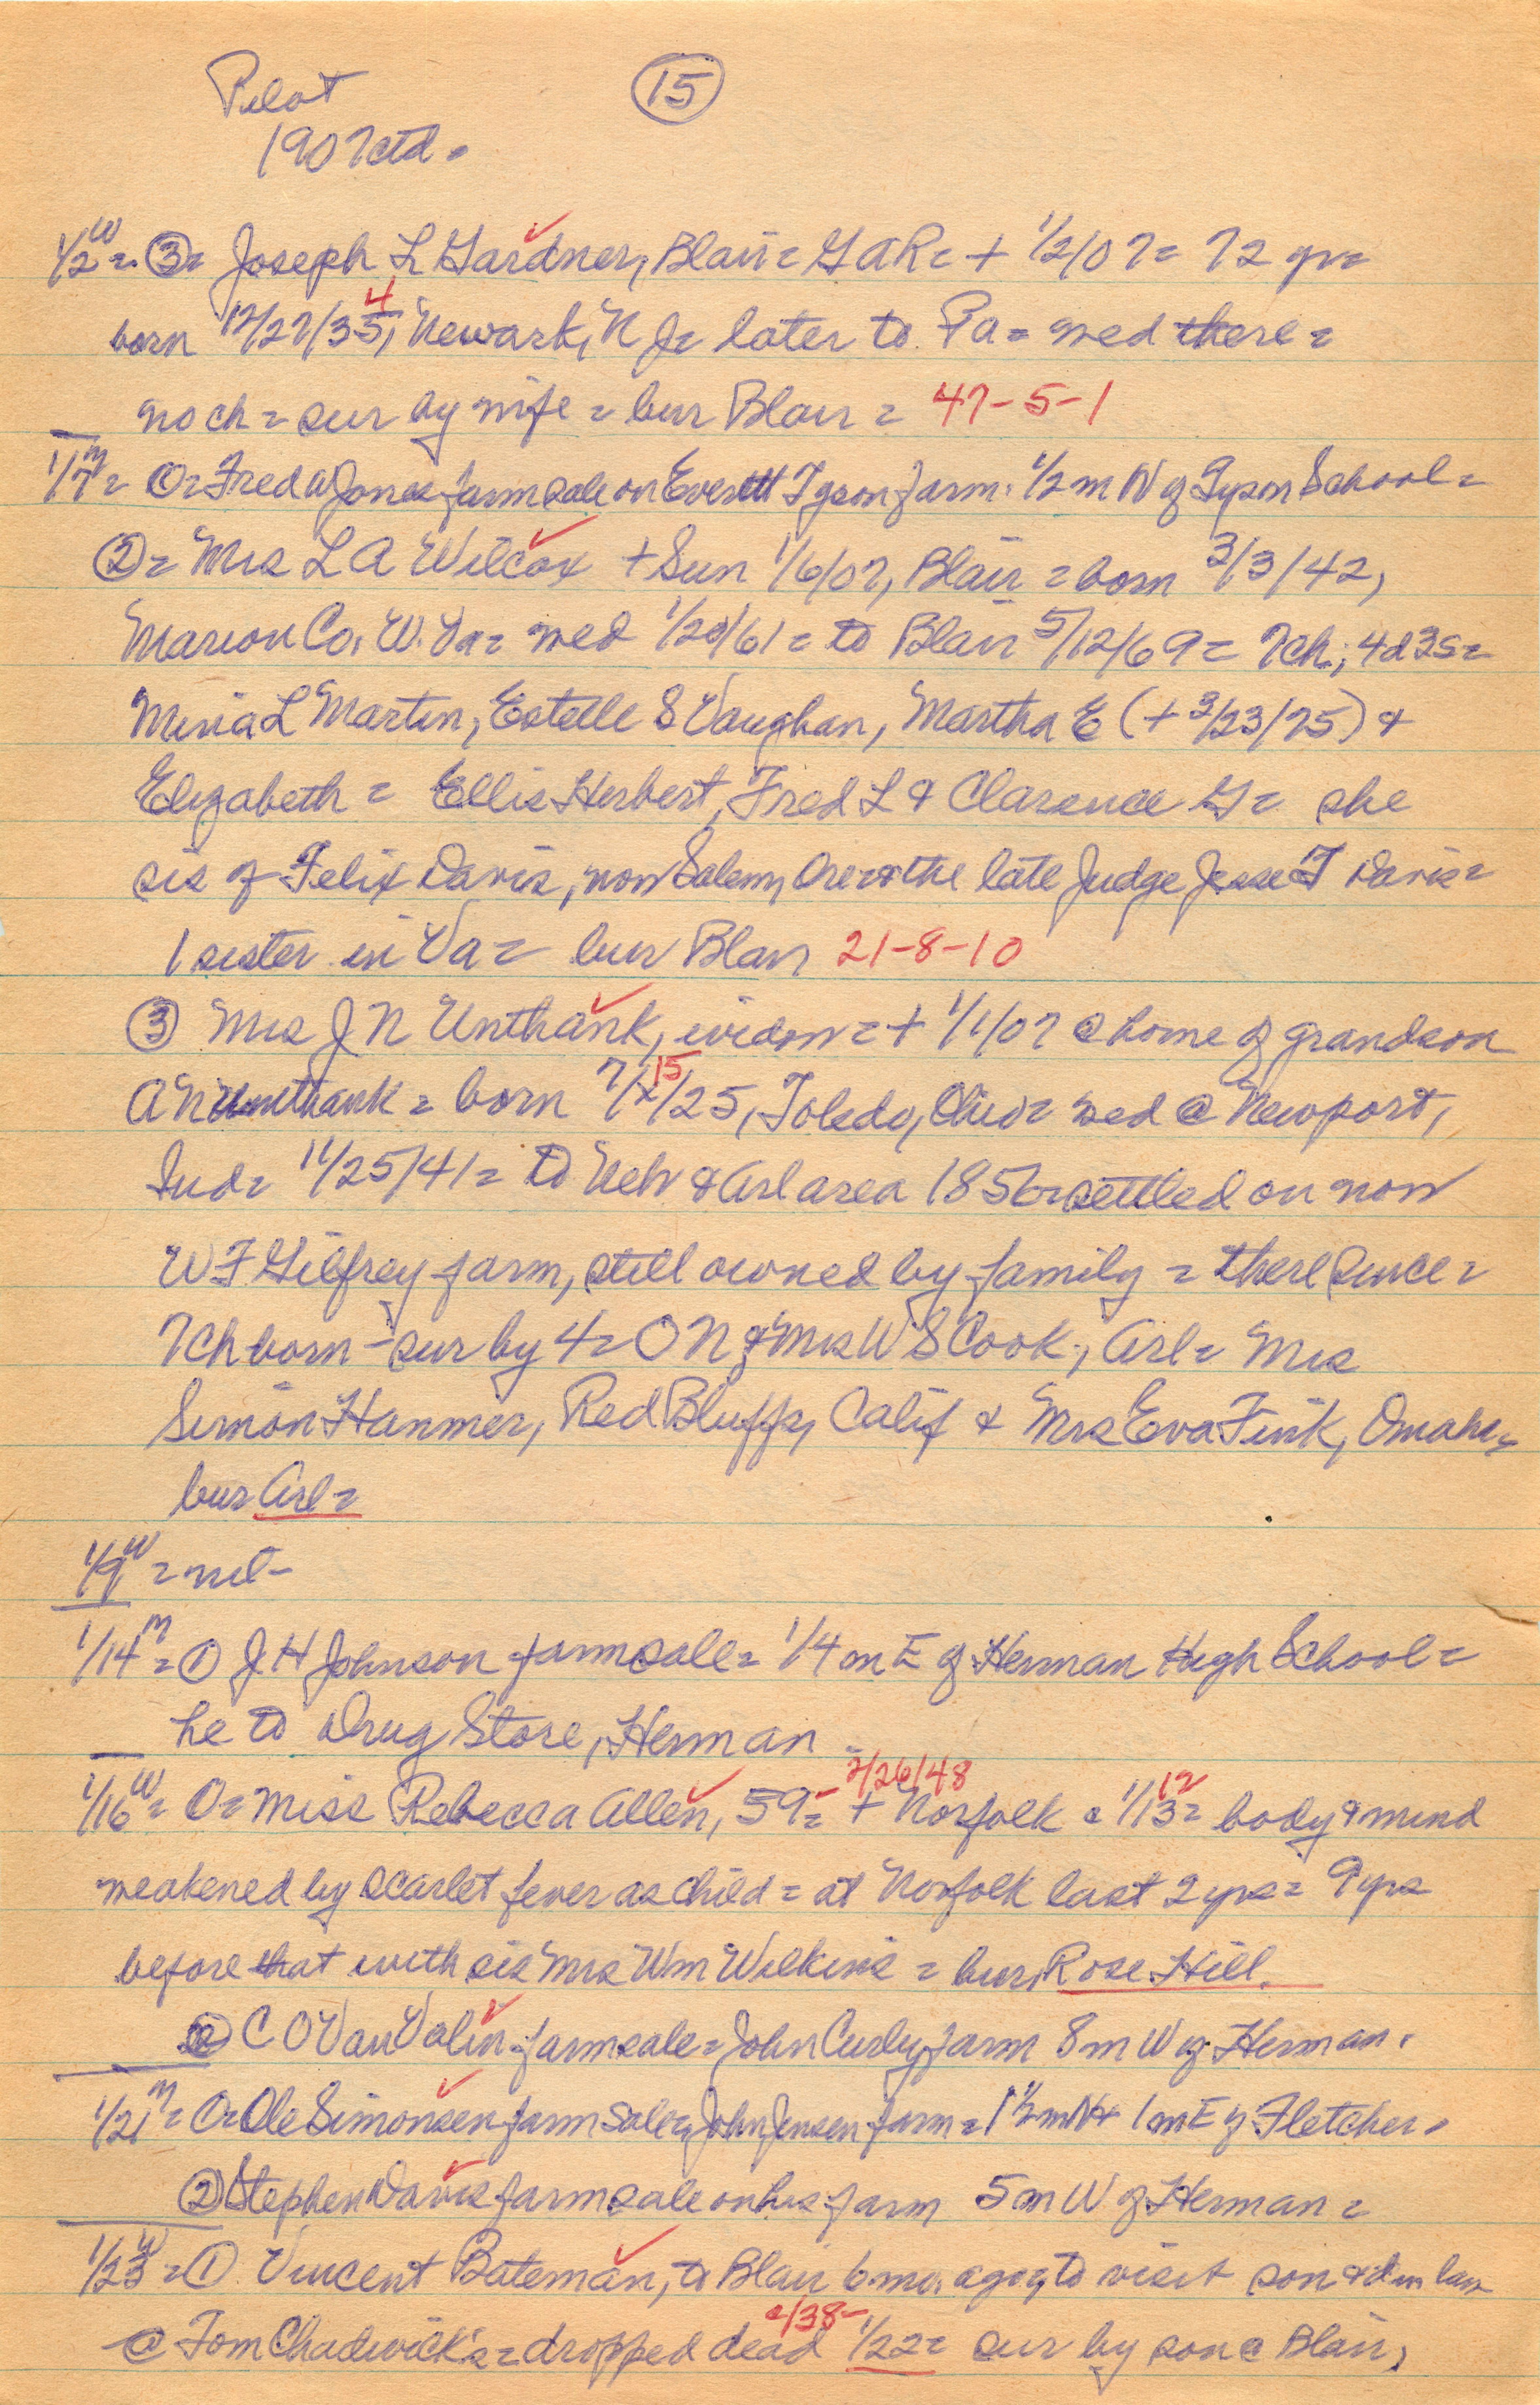 Pilot
15
1907 ctd =
1/2 W = ③ = Joseph L Gardner, Blair = GAR = + 1/2/07 = 72 yr =
4
born 12/27/35, Newark, N J = later to Pa = wed there =
no ch = sur by wife = bur Blair = 47-5-1
1/7 M = ① = Fred W Jones farm sale on Everett Tyson farm. 1/2 m W of Tyson School =
② = Mrs L A Wilcox + Sun 1/6/07, Blair = born 3/3/42,
Marion Co. W. Va = wed 1/20/61 = to Blair 5/12/69 = 7 ch; 4d 3s =
L Martin, Estelle S Vaughan, Martha E (+ 3/23/75) &
Elizabeth = Ellis Herbert, Fred L & Clarence G = she
sis of Felix Davis, now Salem, Ore & the late Judge Jesse T Davis =
1 sister in Va = bur Blair 21-8-10
③ Mrs J N Unthank, widow = + 1/1/07 @ home of grandson
15
A N Unthank = born 7/ /25, Toledo, Ohio = wed @ Newport,
Ind = 11/25/41 = to Neb & Arl area 1856 = settled on now
W F Gilfrey farm, still owned by family = there since =
7 ch born - sur by 4 = O N & Mrs W S Cook, Arl = Mrs
Simon Hammer, Red Bluffs, Calif & Mrs Eva Fink, Omaha,
bur Arl =
1/9 W = nil -
1/14 M = ① J H Johnson farm sale = 1/4 m E of Herman High School =
he to Drug Store, Herman =
2/26/48 12
1/16 W = ① = Miss Rebecca Allen, 59 = + Norfolk @ 1/13 = body & mind
weakened by scarlet fever as child = at Norfolk last 2 yrs = 9 yrs
before that with sis Mrs Wm Wilkins = bur, Rose Hill.
② C O Van Valin farm sale = John Curley farm 8 m W of Herman.
1/21 M = ① = Ole Simonsen farm sale, John Jensen farm = 1 1/2 m N & 1 m E of Fletcher.
② Stephen Davis farm sale on his farm 5 m W of Herman =
1/23 W = ① Vincent Bateman, to Blair 6 mo. ago, to visit son & d in law
c/38-
@ Tom Chadwick's = dropped dead 1/22 = sur by son @ Blair,